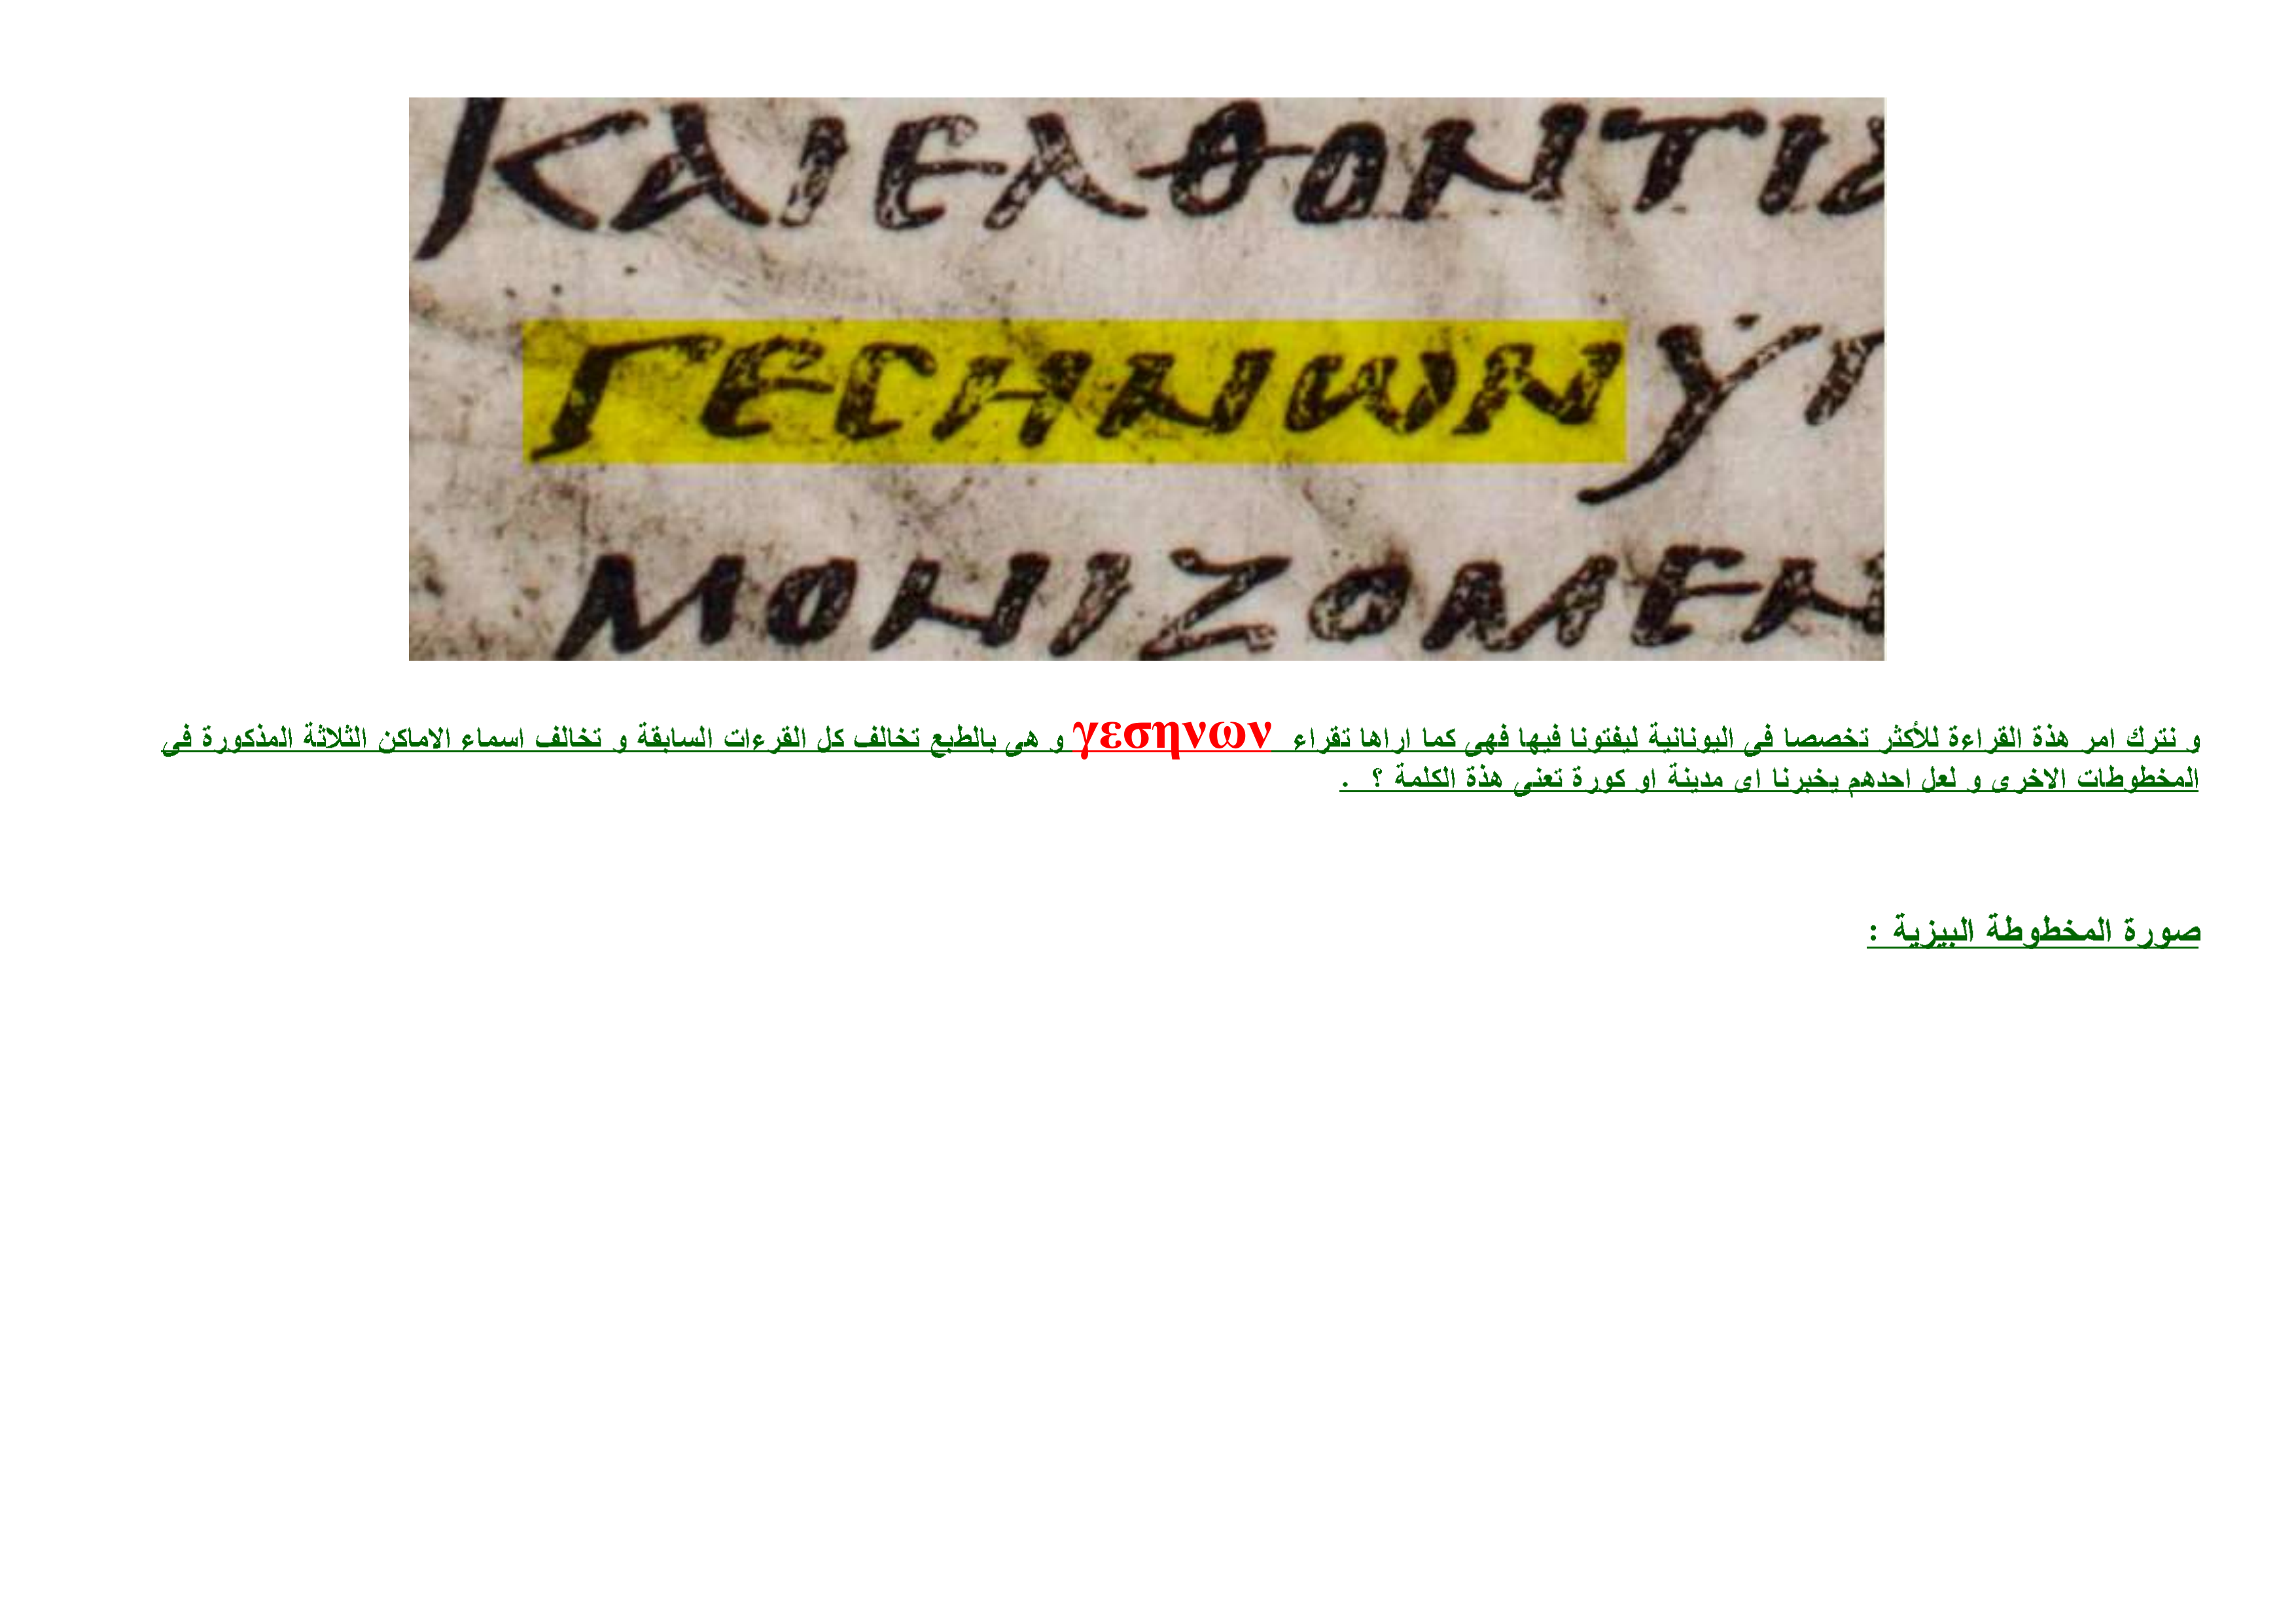 ΚΑΙΕΛΘΟΝΤΙΑ
ΓΕCΗΝΩΝΫΠ
ΜΟΝΙΖΟΜΕΝ
و نترك امر هذة القراءة للأكثر تخصصا فى اليونانية ليفتونا فيها فهى كما اراها تقراء γεσηνων و هى بالطبع تخالف كل القرءات السابقة و تخالف اسماء الاماكن الثلاثة المذكورة فى
المخطوطات الاخرى و لعل احدهم يخبرنا اى مدينة او كورة تعنى هذة الكلمة ؟ .
صورة المخطوطة البيزية :